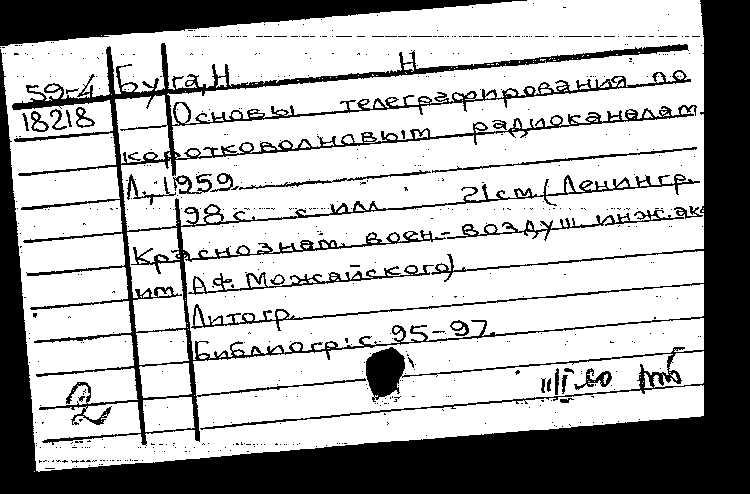 59-4 Буга, Н. Н
18218 Основы телеграфирования по
коротковолновым радиоканалам.
Л., 1959
98 с. с илл 21 см (Ленингр.
Краснознам. воен.-воздуш. инж. ак
им А.Ф. Можайского).
Литогр.
Библиогр: с. 95-97.
2